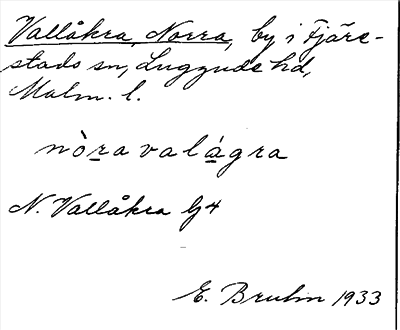 Vallåkra, Norra, by i Fjäre-
stads sn, Luggude hd,
Malm. l.
nòra valágra
N. Vallåkra bj 4
E. Bruhn 1933